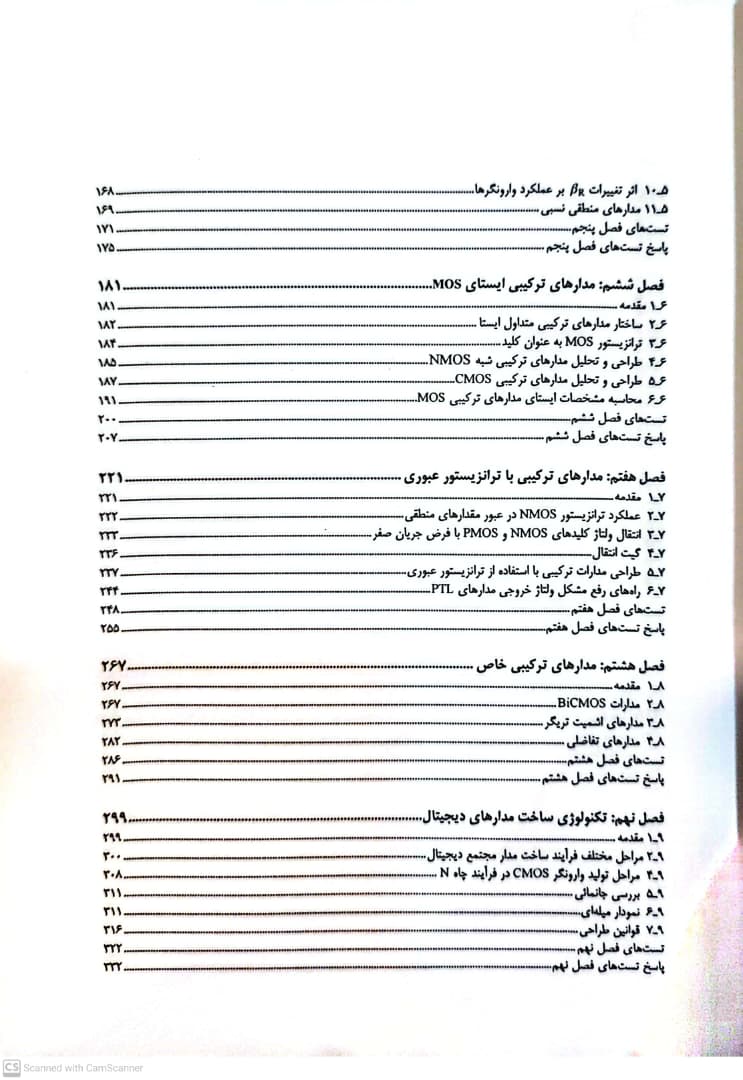 ۱۰ـ۵ اثر تغییرات βR بر عملکرد وارونگرها ۱۶۸
۱۱ـ۵ مدارهای منطقی نسبی ۱۶۹
تست‌های فصل پنجم ۱۷۱
پاسخ تست‌های فصل پنجم ۱۷۵
فصل ششم: مدارهای ترکیبی ایستای MOS ۱۸۱
۱ـ۶ مقدمه ۱۸۱
۲ـ۶ ساختار مدارهای ترکیبی متداول ایستا ۱۸۲
۳ـ۶ ترانزیستور MOS به عنوان کلید ۱۸۴
۴ـ۶ طراحی و تحلیل مدارهای ترکیبی شبه NMOS ۱۸۵
۵ـ۶ طراحی و تحلیل مدارهای ترکیبی CMOS ۱۸۷
۶ـ۶ محاسبه مشخصات ایستای مدارهای ترکیبی MOS ۱۹۱
تست‌های فصل ششم ۲۰۰
پاسخ تست‌های فصل ششم ۲۰۷
فصل هفتم: مدارهای ترکیبی با ترانزیستور عبوری ۲۲۱
۱ـ۷ مقدمه ۲۲۱
۲ـ۷ عملکرد ترانزیستور NMOS در عبور مقدارهای منطقی ۲۲۲
۳ـ۷ انتقال ولتاژ کلیدهای NMOS و PMOS با فرض جریان صفر ۲۳۳
۴ـ۷ گیت انتقال ۲۳۶
۵ـ۷ طراحی مدارات ترکیبی با استفاده از ترانزیستور عبوری ۲۳۷
۶ـ۷ راه‌های رفع مشکل ولتاژ خروجی مدارهای PTL ۲۴۴
تست‌های فصل هفتم ۲۴۸
پاسخ تست‌های فصل هفتم ۲۵۵
فصل هشتم: مدارهای ترکیبی خاص ۲۶۷
۱ـ۸ مقدمه ۲۶۷
۲ـ۸ مدارات BiCMOS ۲۶۷
۳ـ۸ مدارهای اشمیت تریگر ۲۷۳
۴ـ۸ مدارهای تفاضلی ۲۸۲
تست‌های فصل هشتم ۲۸۶
پاسخ تست‌های فصل هشتم ۲۹۱
فصل نهم: تکنولوژی ساخت مدارهای دیجیتال ۲۹۹
۱ـ۹ مقدمه ۲۹۹
۲ـ۹ مراحل مختلف فرآیند ساخت مدار مجتمع دیجیتال ۳۰۰
۴ـ۹ مراحل تولید وارونگر CMOS در فرآیند چاه N ۳۰۸
۵ـ۹ بررسی جانمائی ۳۱۱
۶ـ۹ نمودار میله‌ای ۳۱۱
۷ـ۹ قوانین طراحی ۳۱۶
تست‌های فصل نهم ۳۲۲
پاسخ تست‌های فصل نهم ۳۳۲
CS Scanned with CamScanner